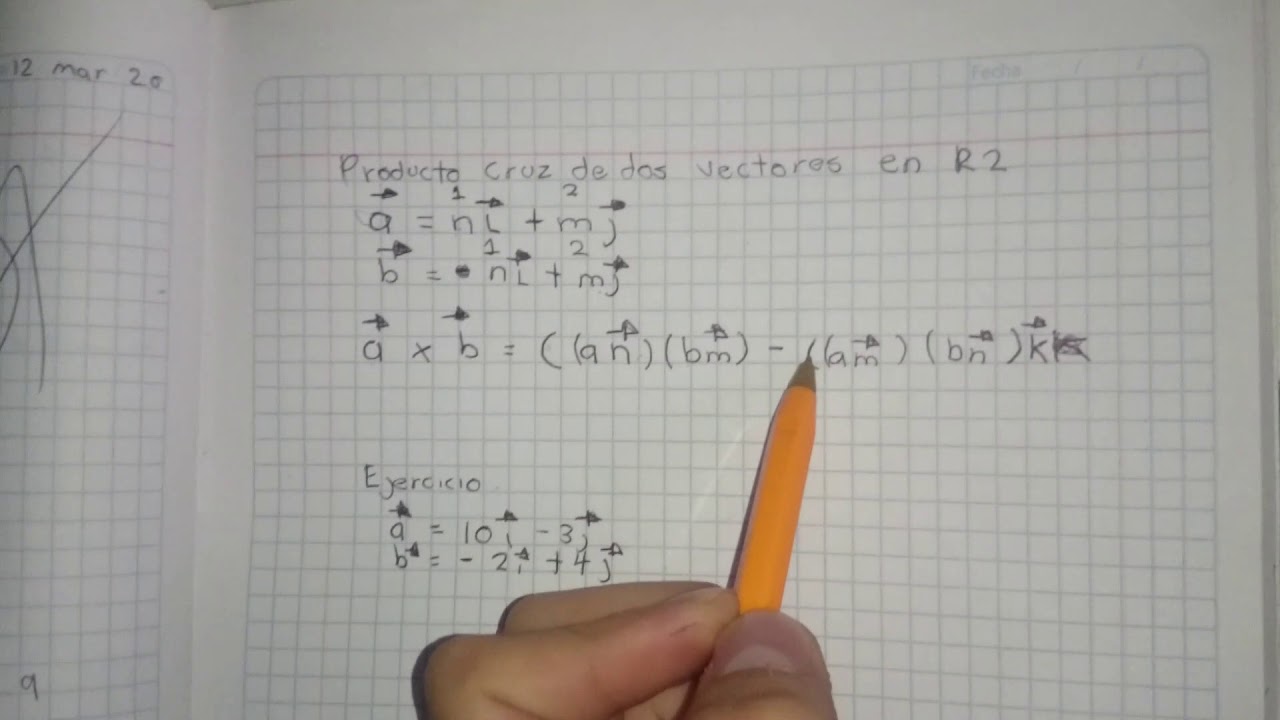 12 mar 20
Fecha / /
Producto cruz de dos vectores en R2
1 2
a⃗ = n i⃗ + m j⃗
1 2
b⃗ = n i⃗ + m j⃗
a⃗ x b⃗ = ((a n⃗)(b m⃗) - ((a m⃗)(b n⃗) k⃗
Ejercicio
a⃗ = 10 i⃗ - 3 j⃗
b⃗ = - 2 i⃗ + 4 j⃗
9